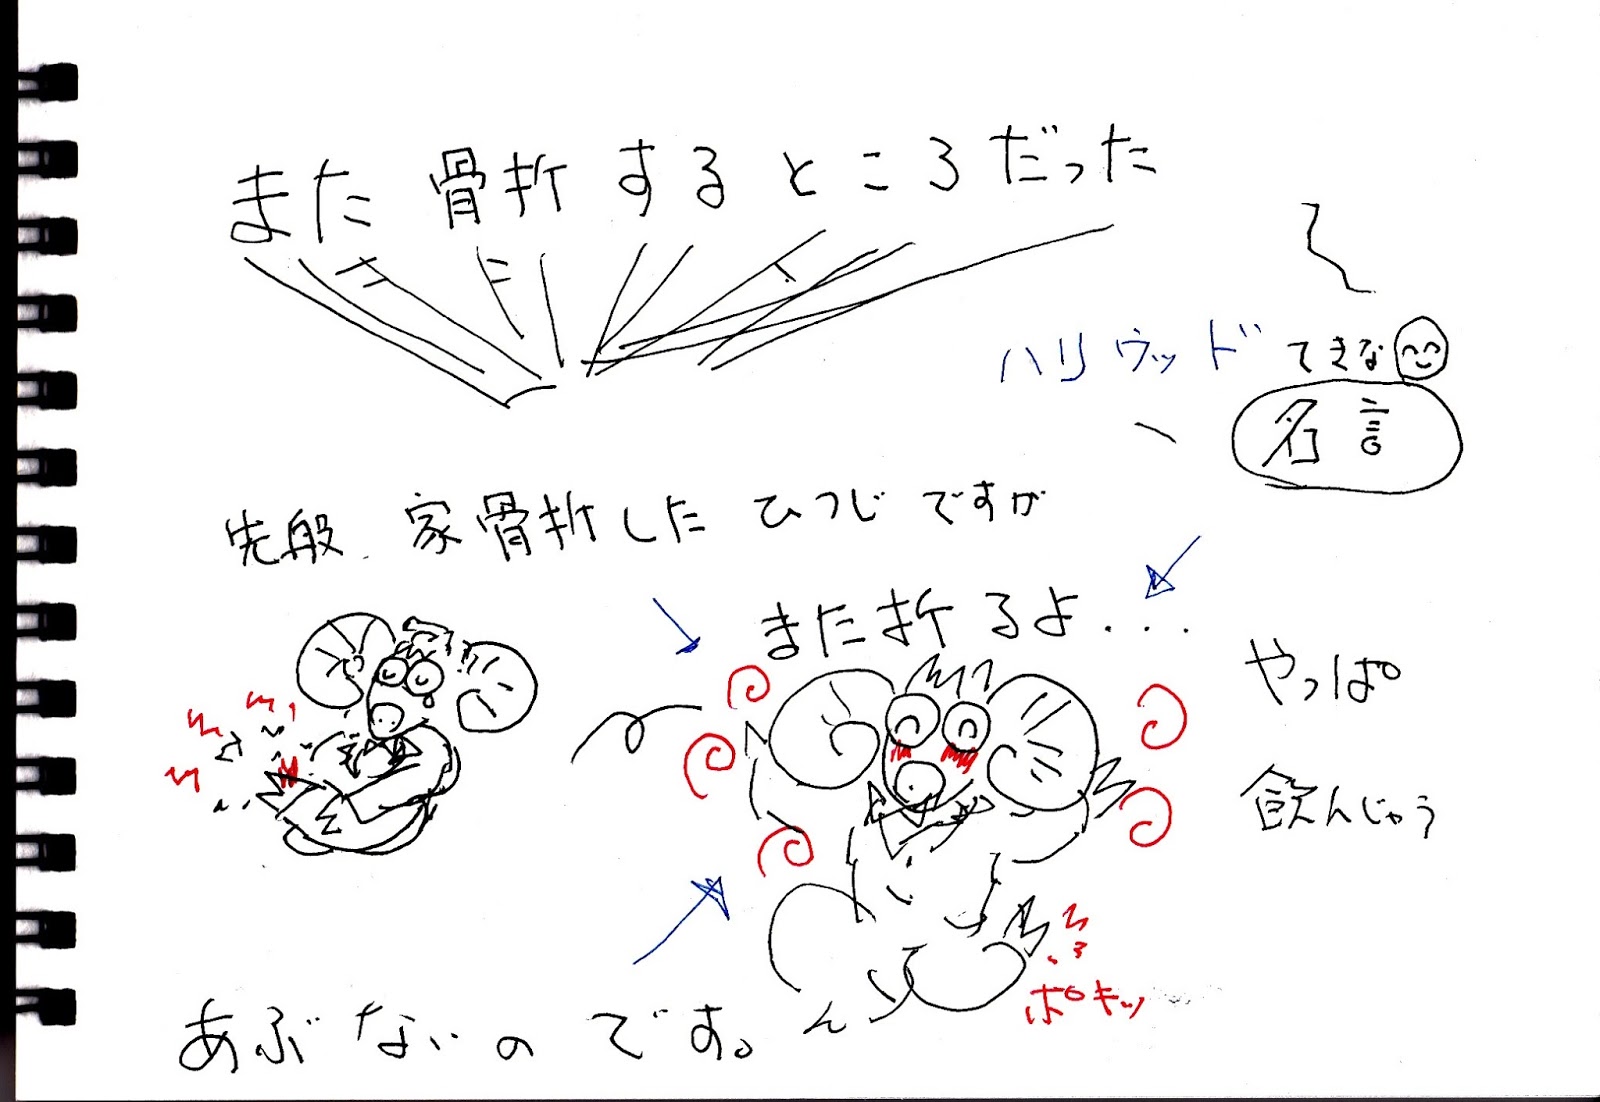 また骨折するところだった
ハリウッドてきな
名言
先般、家骨折したひつじですが
また折るよ...
やっぱ
飲んじゃう
ポキッ
あぶないのです。